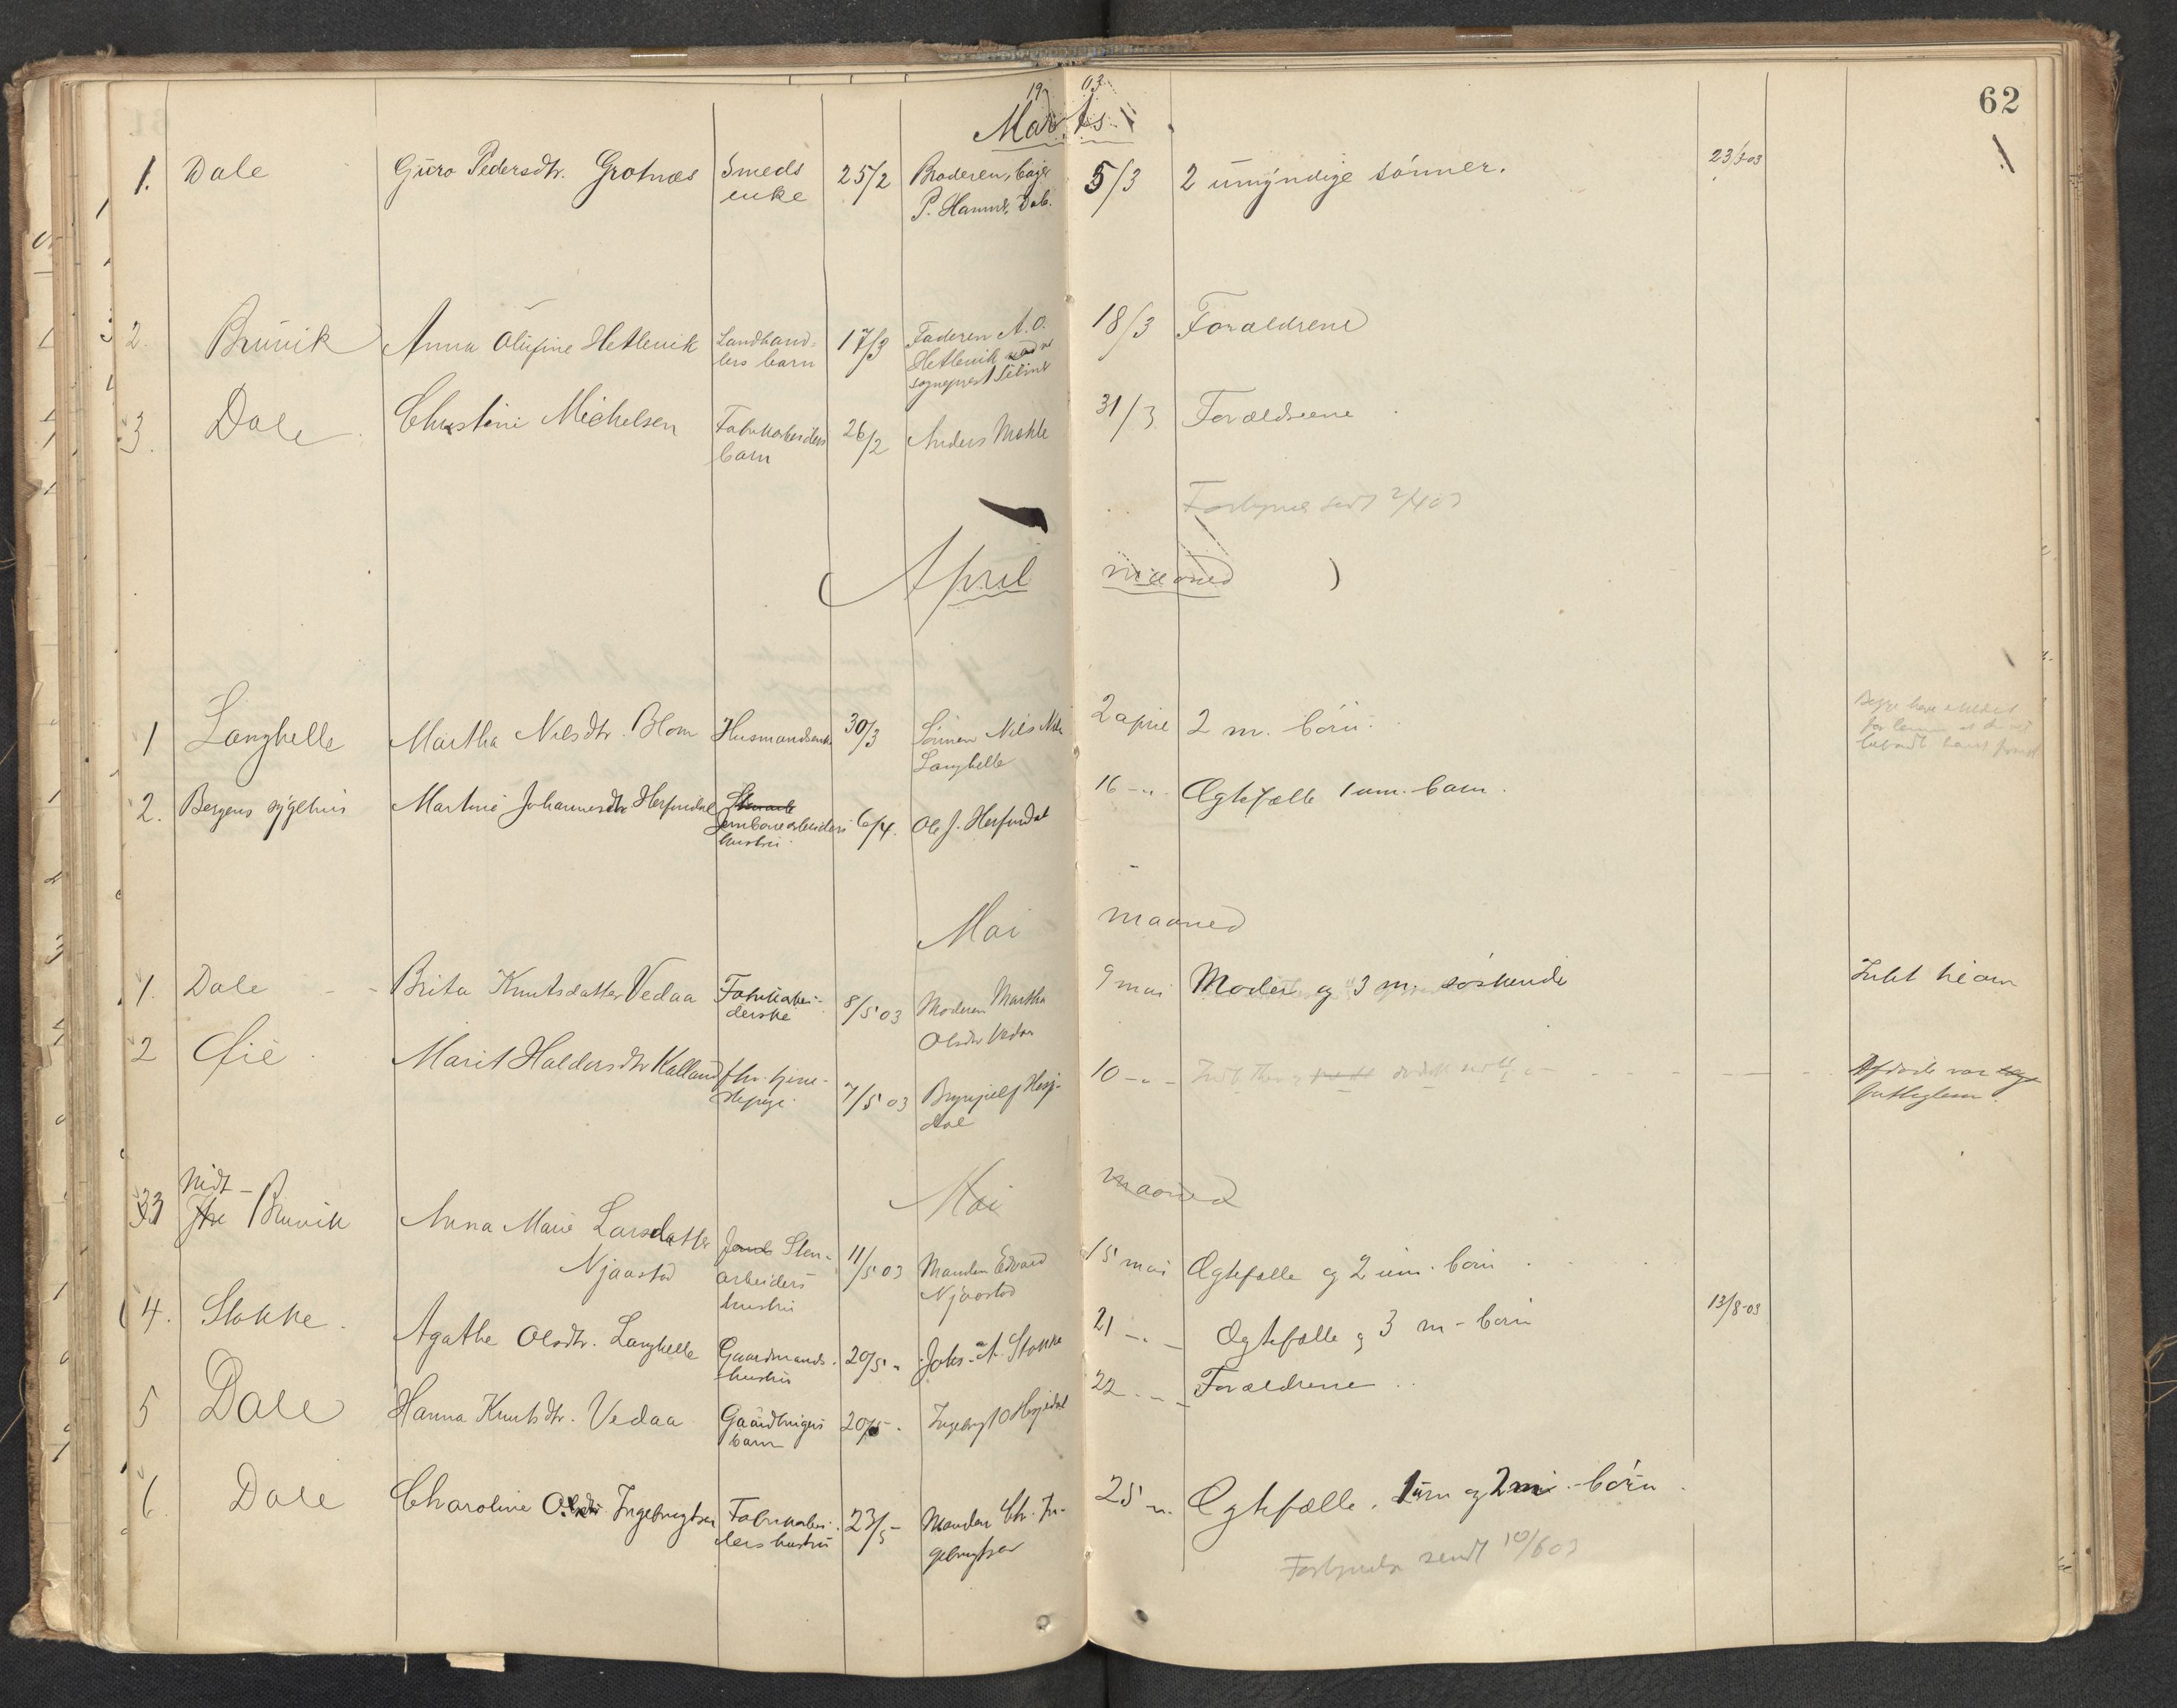 62
1903
Marts
1. Dale Guro Pedersdtr. Grotnæs Smeds 25/2 Broderen, 5/3 2 umyndige sønner. 23/3 03
enke P. Hamre, Dale.
2. Bruvik Anna Olufine Hetlevik Landhand- 17/3 Faderen A. O. 18/3 Forældrene
lers barn Hetlevik
sogneprest
3. Dale Christine Michelsen Fabrikarbeiders 26/2 Anders Mohle 31/3 Forældrene
barn
sendt 2/4 03
April maaned
1 Langhelle Martha Nilsdtr. Blom Husmandsenke 30/3 Sønnen Nils 2 april 2 m. børn.
Langhelle
2. Bergens sygehus Martine Johannesdtr Herfindal 6/4. Ole J. Herfindal 16 -"- Ægtefælle 1 um. barn.
Jernbanearbeiders
hustru
Mai maaned
1. Dale Brita Knutsdatter Vedaa Fabrikarbei- 8/5 03 Moderen Martha 9 mai Moder og 3 m. søskende Intet
derske Olsdtr Vedaa
2 Marit Haldorsdtr Kalland fhv. tjene- 7/5 03 Brynjulf Hesj- 10 -"- Afdøde var
stepige dal fattiglem.
Mai maaned
Midt-
33 Bruvik Anna Marie Larsdatter Sten- 11/5 03 Manden Edvard 15 mai Ægtefælle og 2 um. børn
Njaastad arbeiders Njaastad
hustru
4. Stokke. Agathe Olsdtr. Langhelle Gaardmands- 20/5 " Johs. A. Stokke 21 -"- Ægtefælle og 3 m- børn 13/8-03
hustru
5 Dale Hanna Knutsdtr. Vedaa Gaardbrugers 20/5 - Ingebrigt O Hesjedal 22 -"- Forældrene
barn
6 Dale Charoline Olsdtr Ingebrigtsen Fabrikarbei- 23/5 - Manden Chr. In- 25 -"- Ægtefælle, 1 um og 2 m. børn
ders hustru gebrigtsen
sendt 10/6 03